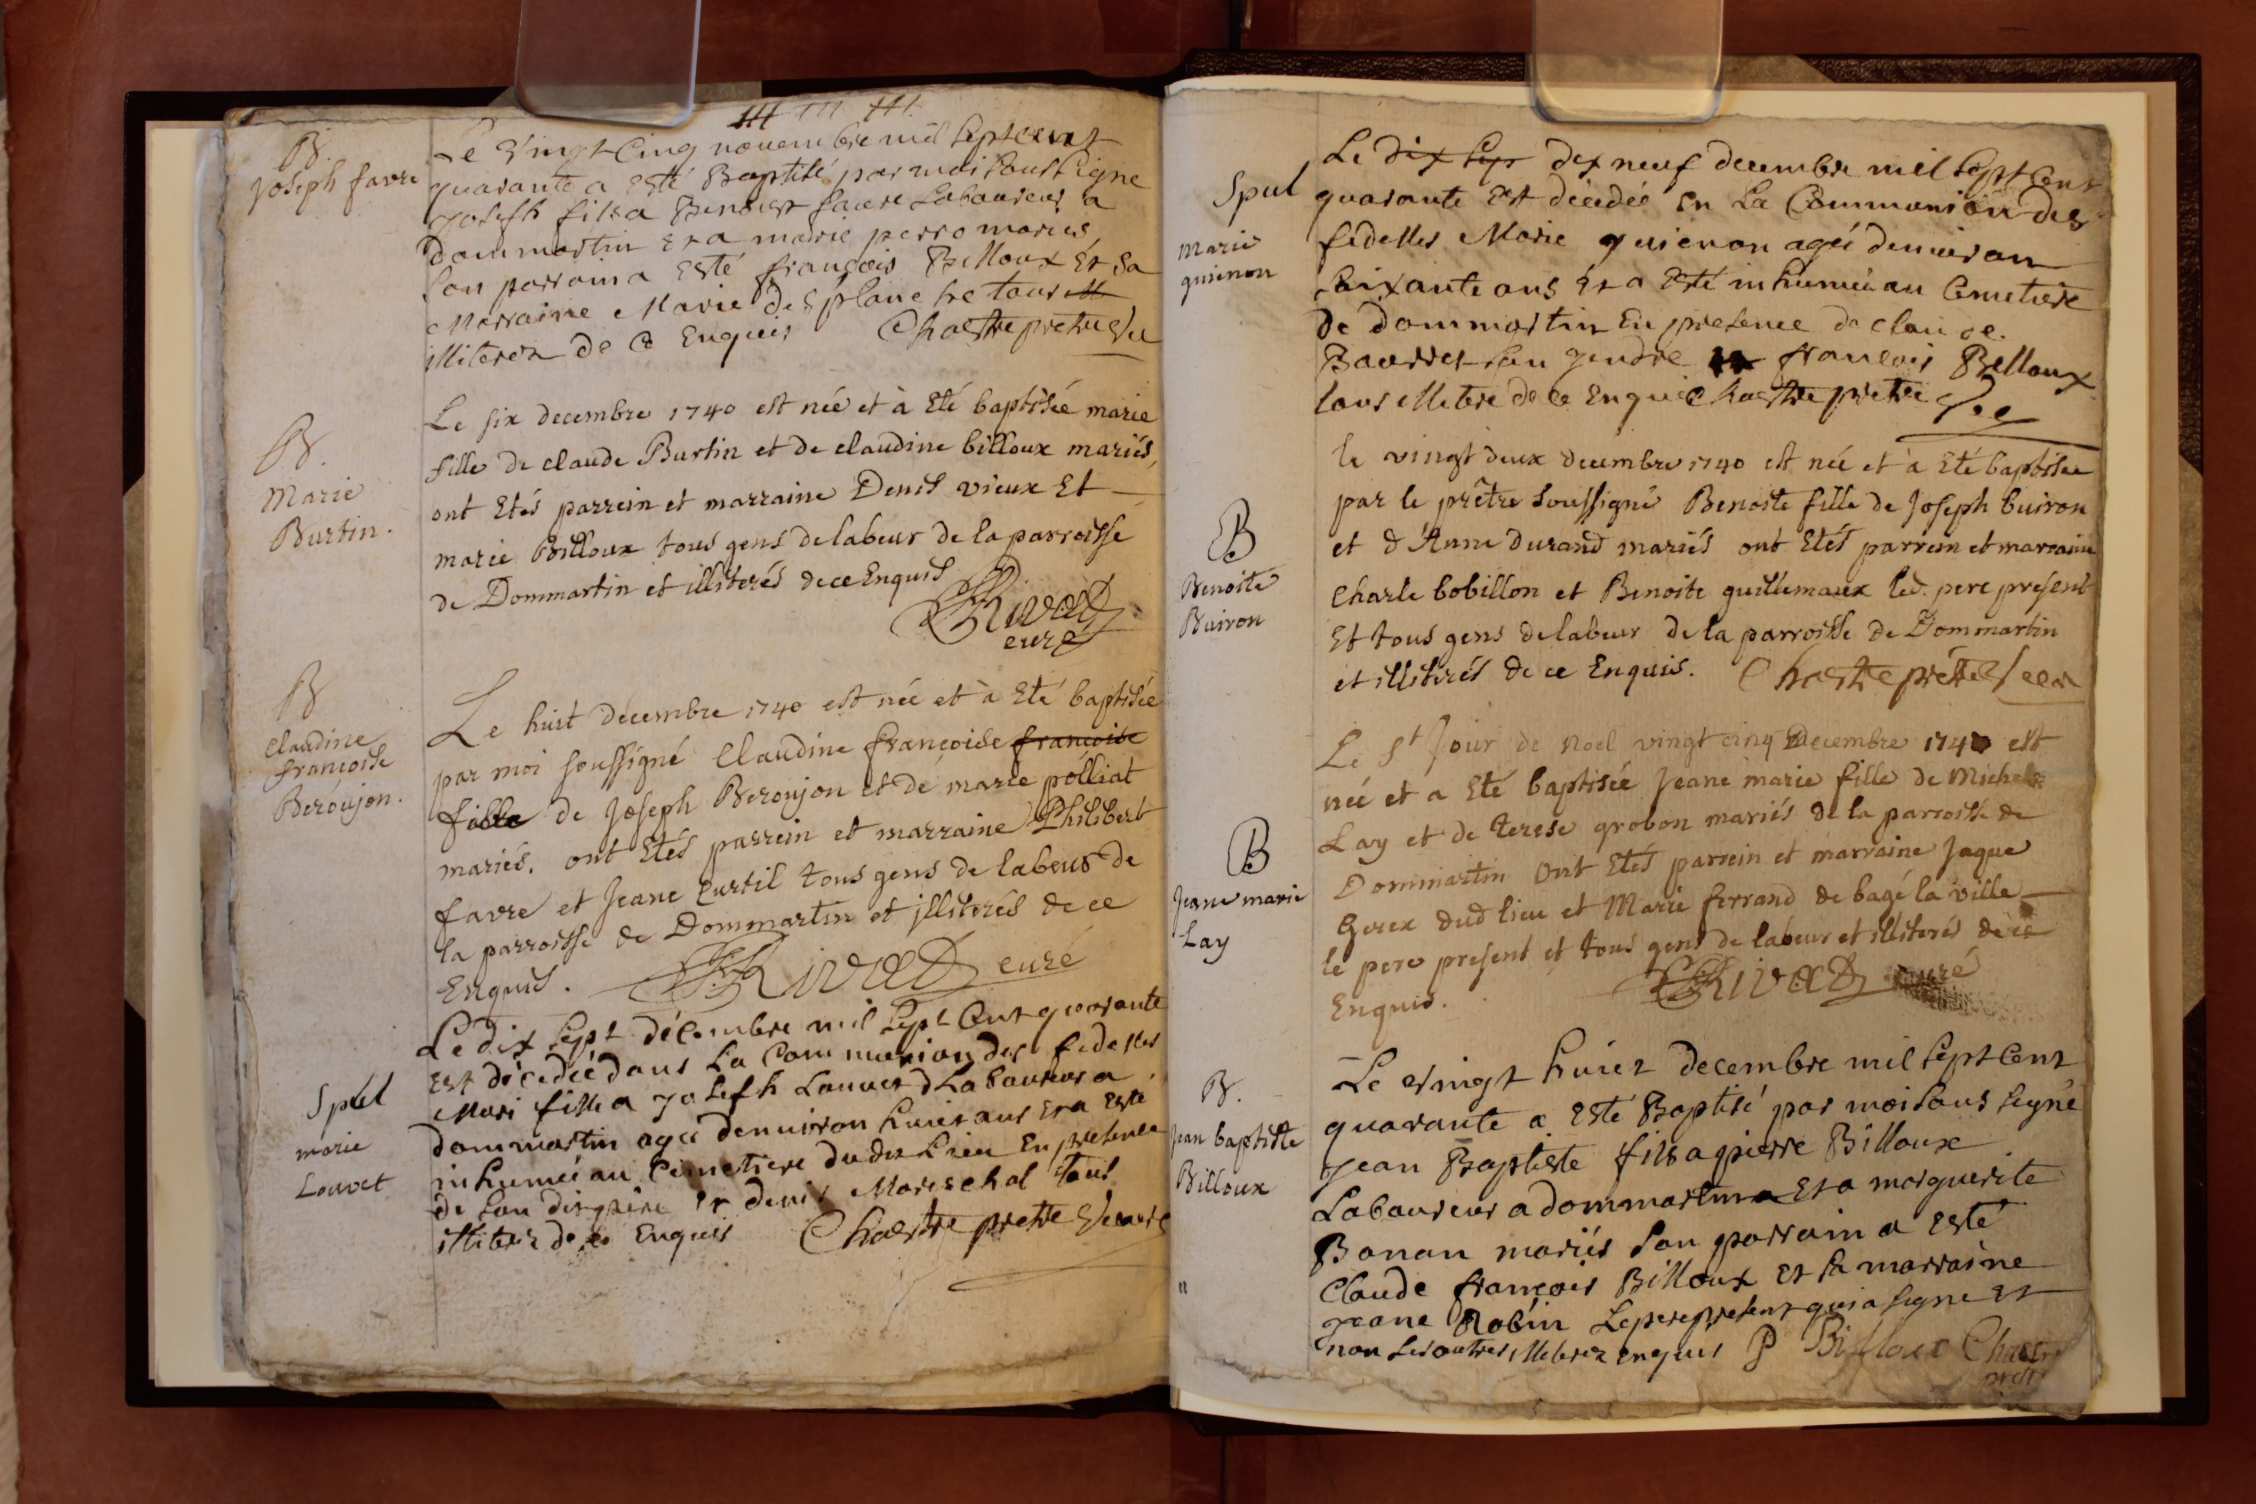 B.
Joseph favre
Le vingt Cinq novembre mil Sept cent
quarante a esté Baptisé par moi Soussigne
Joseph fils a Benoist favre Laboureur a
dommartin et a marie perro mariés
Son parrain a esté françois Billoux Et Sa
Marraine Marie Desplanche tous
illiterez De Ce Enquis Chastre pretre
B.
Marie
Burtin.
Le six decembre 1740 est née et à Eté baptisée marie
fille de claude Burtin et de claudine billoux mariés,
ont Etés parrein et marraine Denis vieux Et
marie Billoux tous gens de labeur de la parroisse
de Dommartin et illiterés de ce Enquis
Rivat
curé
B
Claudine
françoise
Beroujon.
Le huit decembre 1740 est née et à Eté baptisée
par moi soussigné Claudine françoise francoise
fille de Joseph Beroujon et de marie polliat
mariés. ont Etés parrein et marraine Philibert
favre et Jeane Curtil tous gens de labeur de
la parroisse de Dommartin et illiterés de ce
Enquis. Rivat curé
Spul
marie
Louvet
Le dix Sept décembre mil Sept Cent quarante
Est décedée dans La Communion des fidelles
Mari fille a Joseph Louvet Laboureur a
dommartin agée denuiron huict ans et a Esté
inhumée au Cimetiere dudit Lieu En presence
de Son dit pere et denis Mareschal tous
illiterez de Ce Enquis Chastre pretre
Spul
Marie
guienon
Le dix Sept dix neuf decembre mil Sept Cent
quarante Est décedée En La Communion des
fidelles Marie guienon agée denuiron
Soixante ans Et a Esté inhumée au Cemetiere
De dommartin En presence de claude
Bourret Son gendre et françois Billoux
tous illitere de Ce Enquis Chastre pretre
B
Benoite
Buiron
le vingt deux decembre 1740 est née et à Eté baptisée
par le prêtre Soussigné Benoite fille de Joseph buiron
et d'Anne durand mariés ont Etés parrein et marraine
Charle bobillon et Benoite guillemaux led. pere présent
Et tous gens de labeur de la parroisse de Dommartin
et illiterés de ce Enquis. Chastre prêtre
B
Jeane marie
Lay
Le St Jour de Noel vingt cinq Decembre 1740 est
née et a Eté baptisée Jeane marie fille de Michel
Lay et de terese grobon mariés de la parroisse de
Dommartin Ont Etés parrein et marraine Jaque
Gerex dud lieu et Marie ferrand de bagé la ville
le pere present et tous gens de labeur et illiterés de ce
Enquis. Rivat curé
B.
Jean baptiste
Billoux
Le vingt huict decembre mil Sept Cent
quarante a Esté Baptisé par moi Sous Signé
Jean Baptiste fils a pierre Billoux
Laboureur a dommartin Et a marguerite
Bonan mariés Son parrain a Esté
Claude françois Billoux et Sa marraine
Jeane Robin Le pere present qui a Signe Et
non Les autres illiterez enquis P Billoux Chastre
pretre